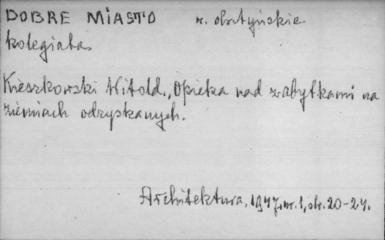 DOBRE MIASTO w. olsztyńskie
kolegiata
Kieszkowski Witold., Opieka nad zabytkami na
ziemiach odzyskanych.
Architektura, 1947, nr. 1, str. 20-24.